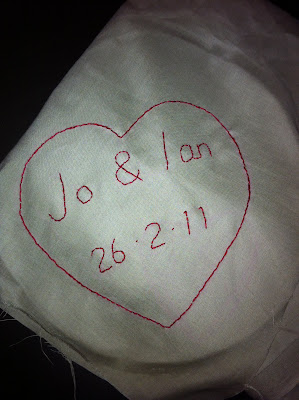 Jo & Ian
26.2.11